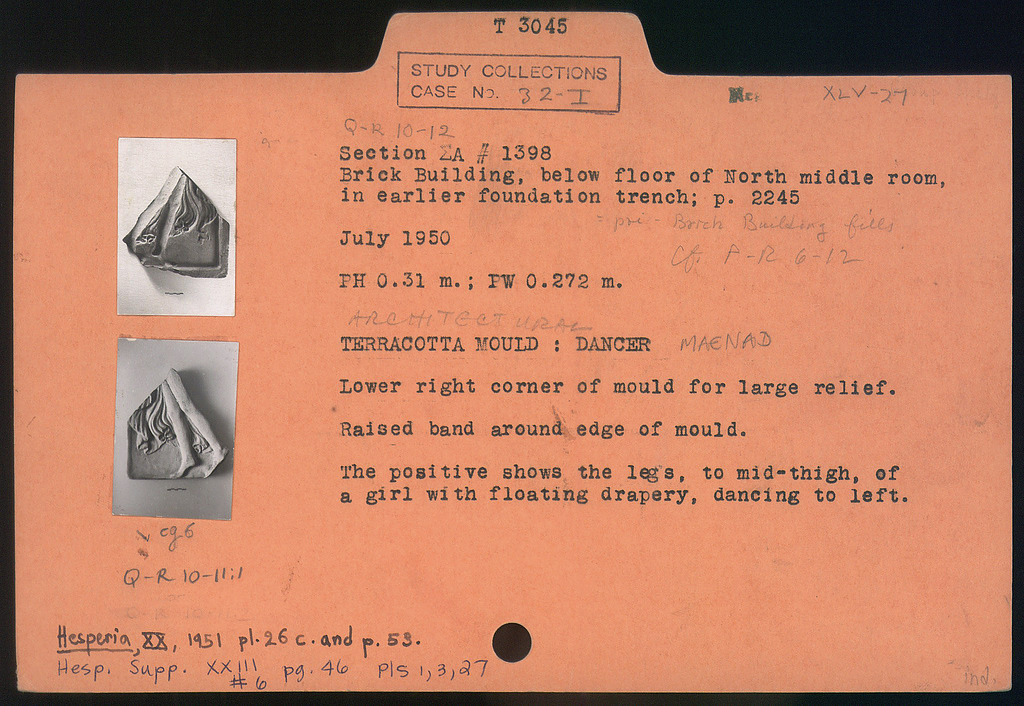 T 3045
STUDY COLLECTIONS
CASE No. 32-I
XLV-27
Q-R 10-12
Section ΣA # 1398
Brick Building, below floor of North middle room,
in earlier foundation trench; p. 2245
Brick Building fills
July 1950
Cf. P-R 6-12
PH 0.31 m.; PW 0.272 m.
ARCHITECTURAL
TERRACOTTA MOULD : DANCER MAENAD
Lower right corner of mould for large relief.
Raised band around edge of mould.
The positive shows the legs, to mid-thigh, of
a girl with floating drapery, dancing to left.
cg 6
Q-R 10-11:1
Hesperia, XX, 1951 pl. 26 c. and p. 53.
Hesp. Supp. XXIII pg. 46 Pls 1, 3, 27
# 6
ind.